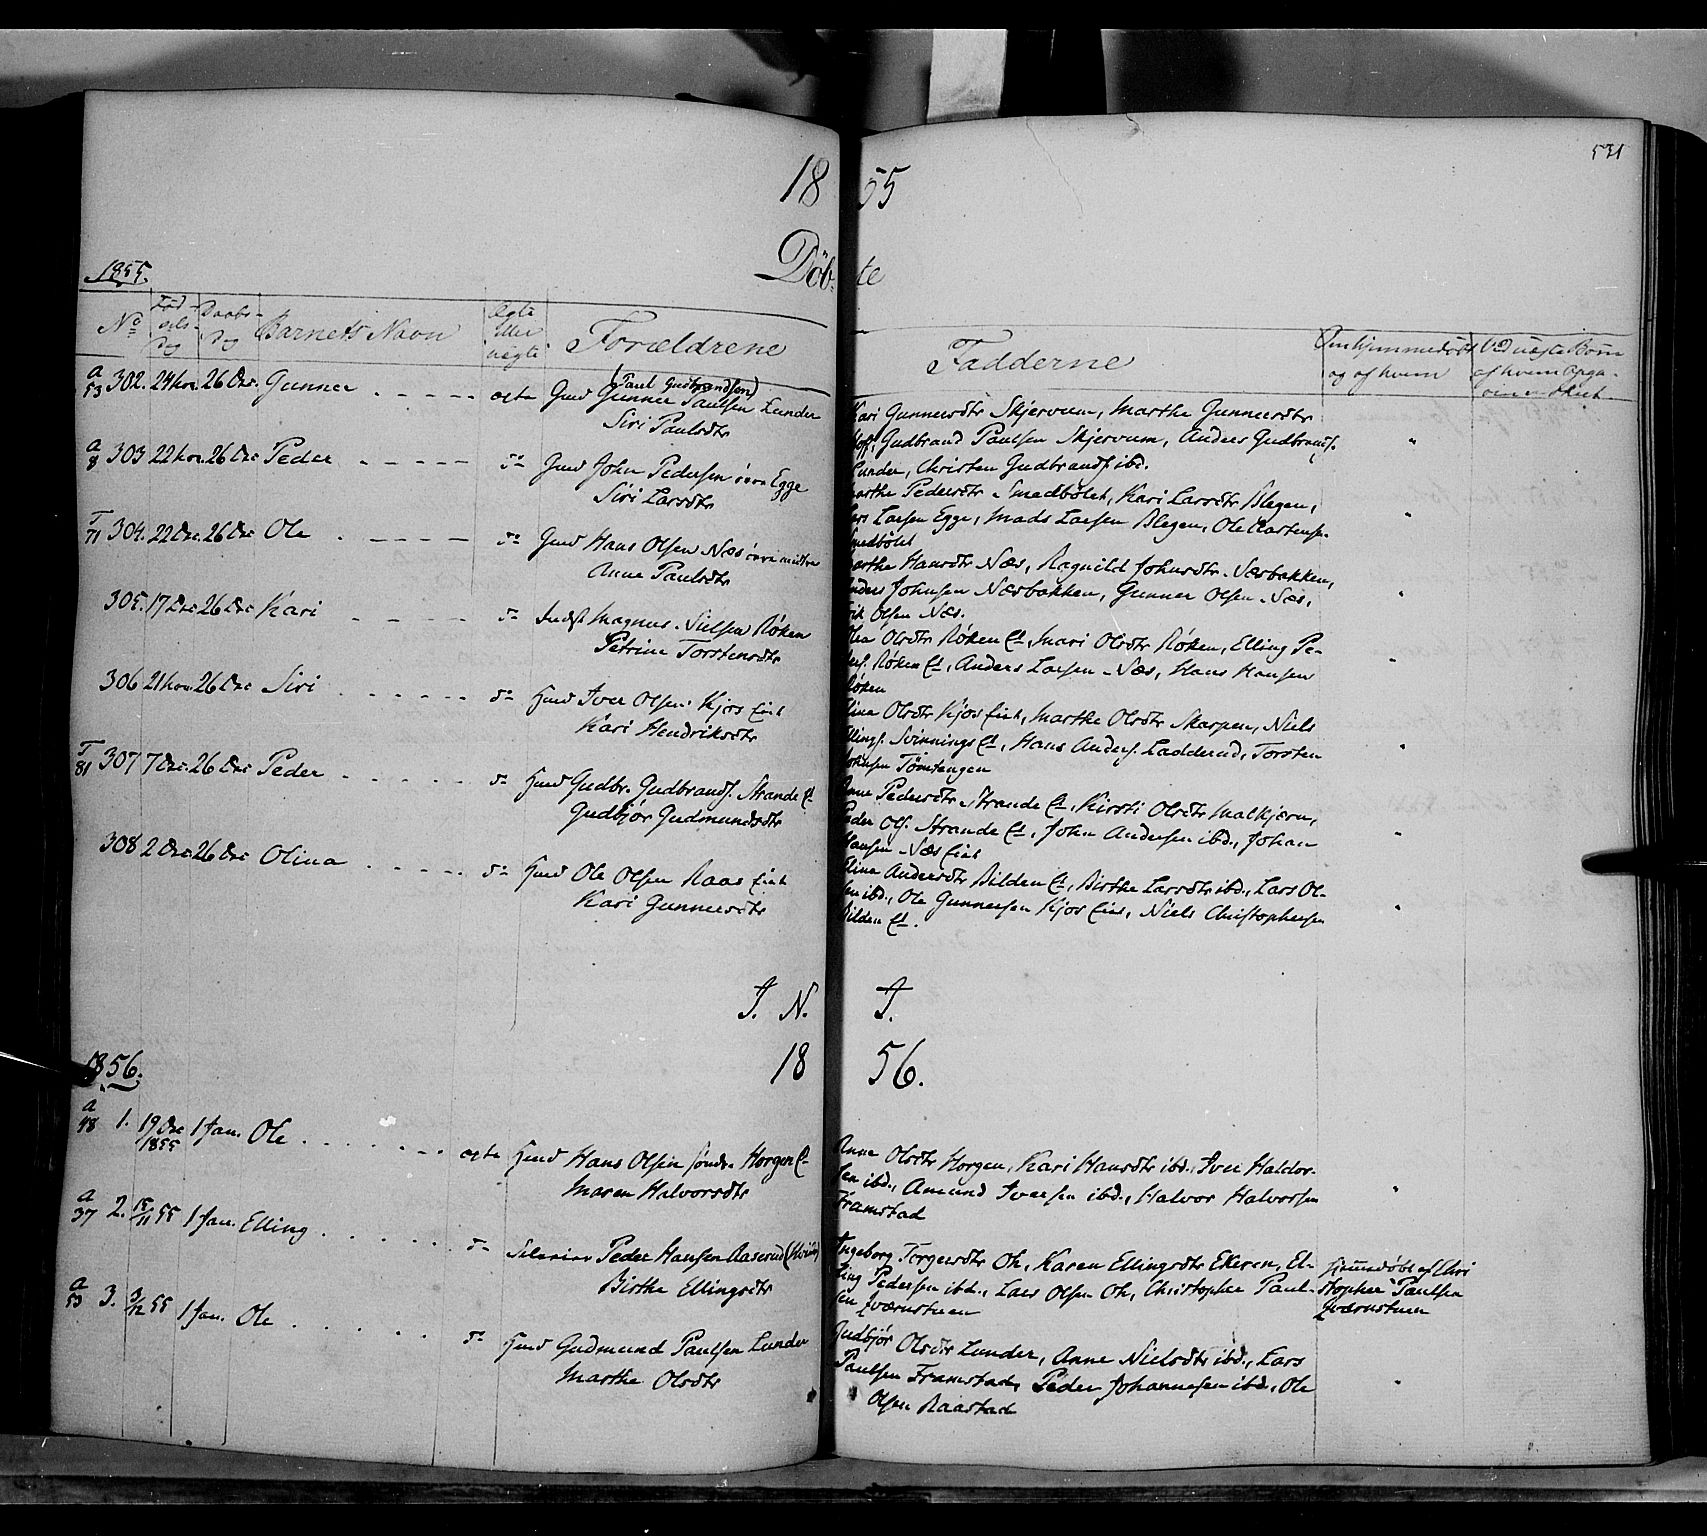 531
18 55
Döb- te
1855.
No Fød sels Dag Daabs- Dag Barnets Navn Ægte eller uægte Forældrene Fadderne Om hjemmedøbt og af hvem Ved uægte Børn af hvem
a 53 302. 24 Nov 26 Dec. Gunner ægte Gmd (Paul Gudbrandsen) Gunner Paulsen Lunder
Siri Paulsdtr
Kari Gunnersdtr Skjervum, Marthe Gunnersdtr
Hoff, Gudbrand Paulsen Skjervum, Anders Gudbrands.
Lunder, Christen Gudbrands ibd.
a 8 303 22 Nov 26 Dec Peder do Gmd John Pedersen Egge
Siri Larsdtr
Marthe Pedersdtr Smedbølet, Kari Larsdtr Blegen,
Lars Larsen Egge, Mads Larsen Blegen, Ole Carstensen
Smedbølet
T 71 304. 22 Dec. 26 Dec Ole do Gmd Hans Olsen Næs øvre midtre
Anne Paulsdtr
Marthe Hansdtr Næs, Ragnild Johnsdtr Næsbakken,
Anders Johnsen Næsbakken, Gunner Olsen Næs,
Erik Olsen Næs.
305. 17 Dec 26 Dec Kari do Indst Magnus Nielsen Røken
Petrine Torstensdtr
Olea Olsdtr Røken Et, Mari Olsdtr Røken, Elling Pe-
ders. Røken Et, Anders Larsen Næs, Hans Hansen
Røken
306 21 Nov 26 Dec Siri do Hmd Iver Olsen Kjos Eiet
Kari Hendriksdtr
Eline Olsdtr Kjos Eiet, Marthe Olsdtr Skarpen, Niels
Ellings. Svinnings Et, Hans Anders. Ladderud, Torsten
Johnsen Tømtangen
T 81 307 7 Dec 26 Dec Peder do Hmd Gudbr. Gudbrands. Strande Et
Gudbjør Gudmundsdtr
Anne Pedersdtr Strande Et, Kirsti Olsdtr Malkjern,
Peder Ols. Strande Et, John Andersen ibd., Johan
Hansen Næs Eiet
308 2 Dec 26 Dec Olina do Hmd Ole Olsen Raas Eiet
Kari Gunnersdtr
Eline Andersdtr Bilden Et, Birthe Larsdtr ibd., Lars Ol-
sen ibd., Ole Gunnersen Kjos Eiet, Niels Christophersen
Bilden Et.
I. N. I.
1856. 18 56.
a 48 1. 19 Dec 1855 1 Jan. Ole ægte Hmd Hans Olsen søndre Horgen E
Maren Halvorsdtr
Anne Olsdtr Horgen, Kari Hansdtr ibd., Iver Haldor-
sen ibd., Amund Iversen ibd., Halvor Halvorsen
Framstad
a 37 2. 15/11 55 1 Jan. Elling do Selveier Peder Hansen Aaserud
Birthe Ellingsdtr
Ingeborg Torgersdtr Oh, Karen Ellingsdtr Ekeren, El-
ling Pedersen ibd., Lars Olsen Oh, Christopher Paul-
sen Qværnstuen
Hjemmedøbt af Chri
stopher Paulsen
Qværnstuen
a 53 3. 3/12 55 1 Jan. Ole do Hmd Gudmund Paulsen Lunder
Marthe Olsdtr
Gudbjør Olsdtr Lunder, Anne Nielsdtr ibd., Lars
Paulsen Framstad, Peder Johannesen ibd., Ole
Olsen Raastad